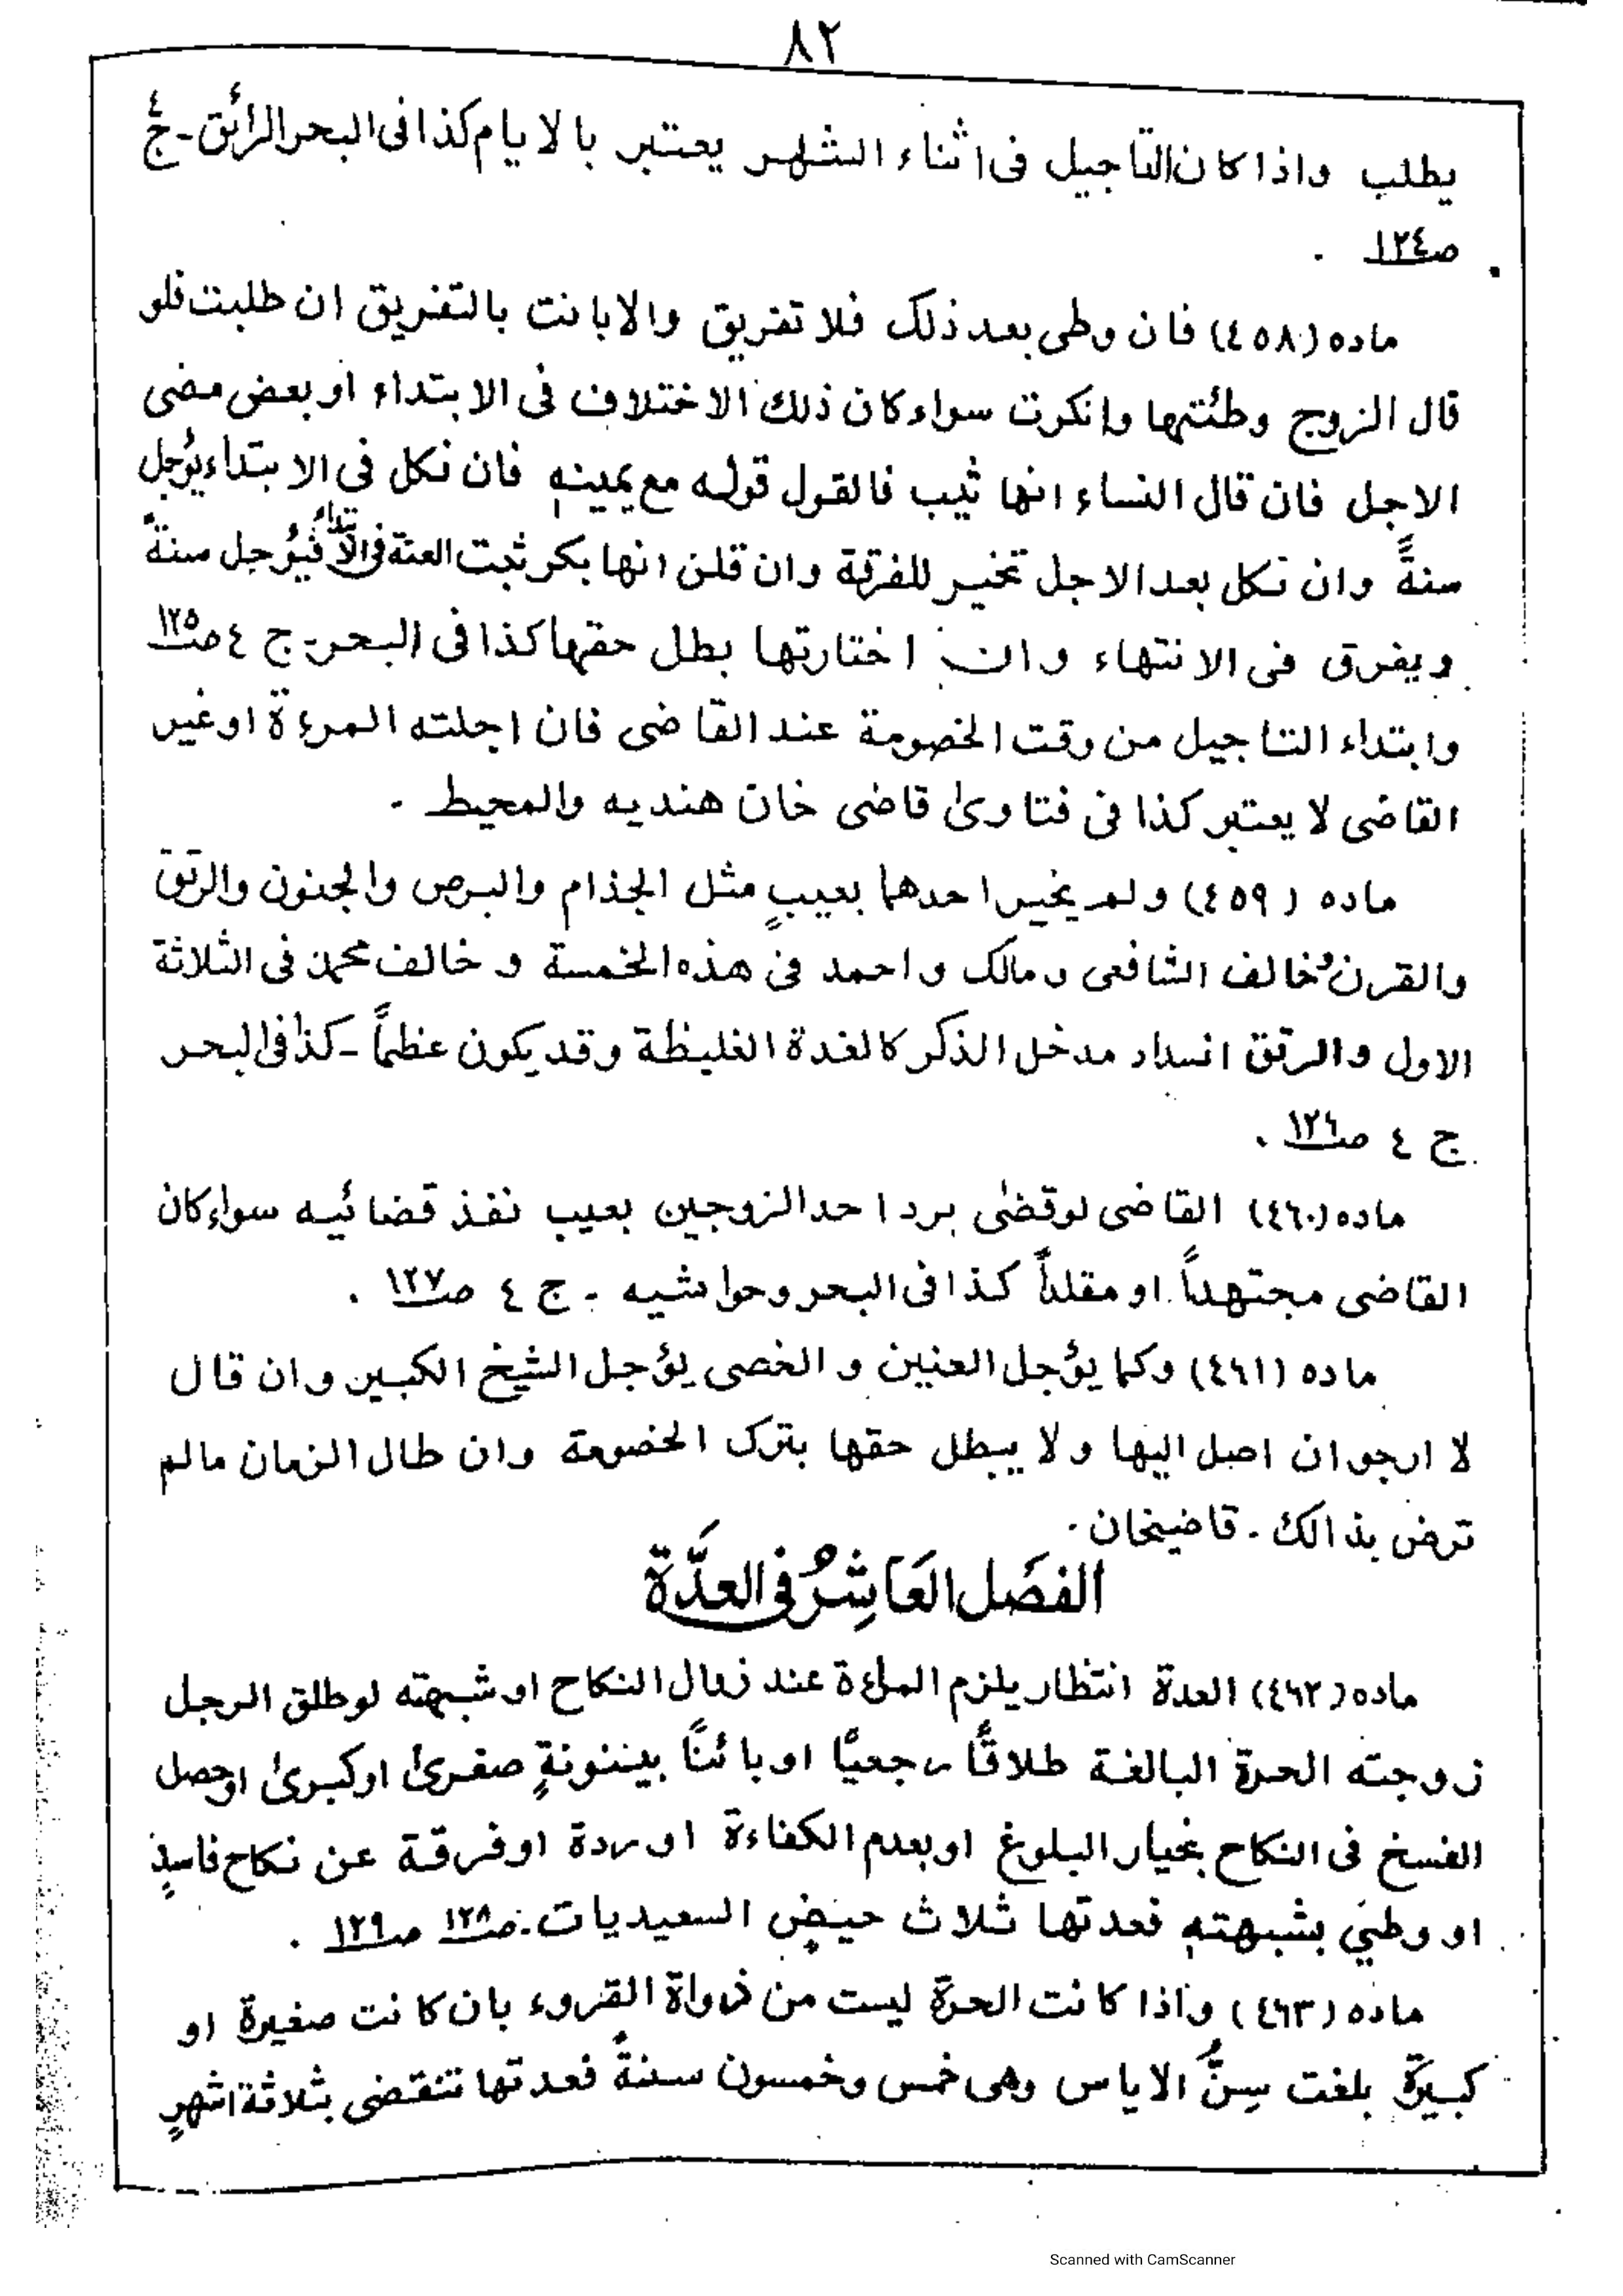 ٨٢
يطلب واذا كان التاجيل فى اثناء الشهر يعتبر بالايام كذا فى البحر الرائق - ج٤
ص١٢٤ .
ماده (٤٥٨) فان وطى بعد ذلك فلا تفريق والابانت بالتفريق ان طلبت فلو
قال الزوج وطئتها وانكرت سواء كان ذلك الاختلاف فى الابتداء او بعض مضى
الاجل فان قال النساء انها ثيب فالقول قوله مع يمينهٖ فان نكل فى الابتداء يؤجل
سنةً وان نكل بعد الاجل تخير للفرقة وان قلن انها بكر ثبت العنة فى الابتداء فيؤجل سنة
ويفرق فى الانتهاء وان اختارتها بطل حقها كذا فى البحر - ج ٤ ص١٢٥
وابتداء التاجيل من وقت الخصومة عند القاضى فان اجلته المرءة او غير
القاضى لا يعتبر كذا فى فتاوىٰ قاضى خان هنديه والمحيط -
ماده (٤٥٩) ولم يخير احدهما بعيبٍ مثل الجذام والبرص والجنون والرتق
والقرن وخالف الشافعى ومالك واحمد فى هذه الخمسة و خالف محمد فى الثلاثة
الاول والرتق انسداد مدخل الذكر كالغدة الغليظة وقد يكون عظماً - كذا فى البحر
ج ٤ ص١٢٦ .
ماده (٤٦٠) القاضى لو قضٰى برد احد الزوجين بعيب نفذ قضائيه سواء كان
القاضى مجتهداً او مقلداً كذا فى البحر وحواشيه - ج ٤ ص١٢٧ .
ماده (٤٦١) وكما يؤجل العنين و الخصى يؤجل الشيخ الكبير وان قال
لا ارجو ان اصل اليها ولا يبطل حقها بترك الخصومة وان طال الزمان مالم
ترض بذالك - قاضيخان -
الفصَل العَاشِرُ فى العدَّة
ماده (٤٦٢) العدة انتظار يلزم المرءة عند زوال النكاح او شبهته لو طلق الرجل
زوجته الحرة البالغة طلاقًا رجعيًا او بائنًا بينونةٍ صغرىٰ او كبرىٰ او حصل
الفسخ فى النكاح بخيار البلوغ او بعدم الكفاءة او ردة او فرقة عن نكاح فاسدٍ
او وطئ بشبهتهٖ فعدتها ثلاث حيضٍ السعيديات - ص١٢٨ ص١٢٩ .
ماده (٤٦٣) واذا كانت الحرة ليست من ذواة القروء بان كانت صغيرة او
كبيرة بلغت سِنَّ الاياس وهى خمس وخمسون سنةً فعدتها تنقضى بثلاثة اشهرٍ
Scanned with CamScanner